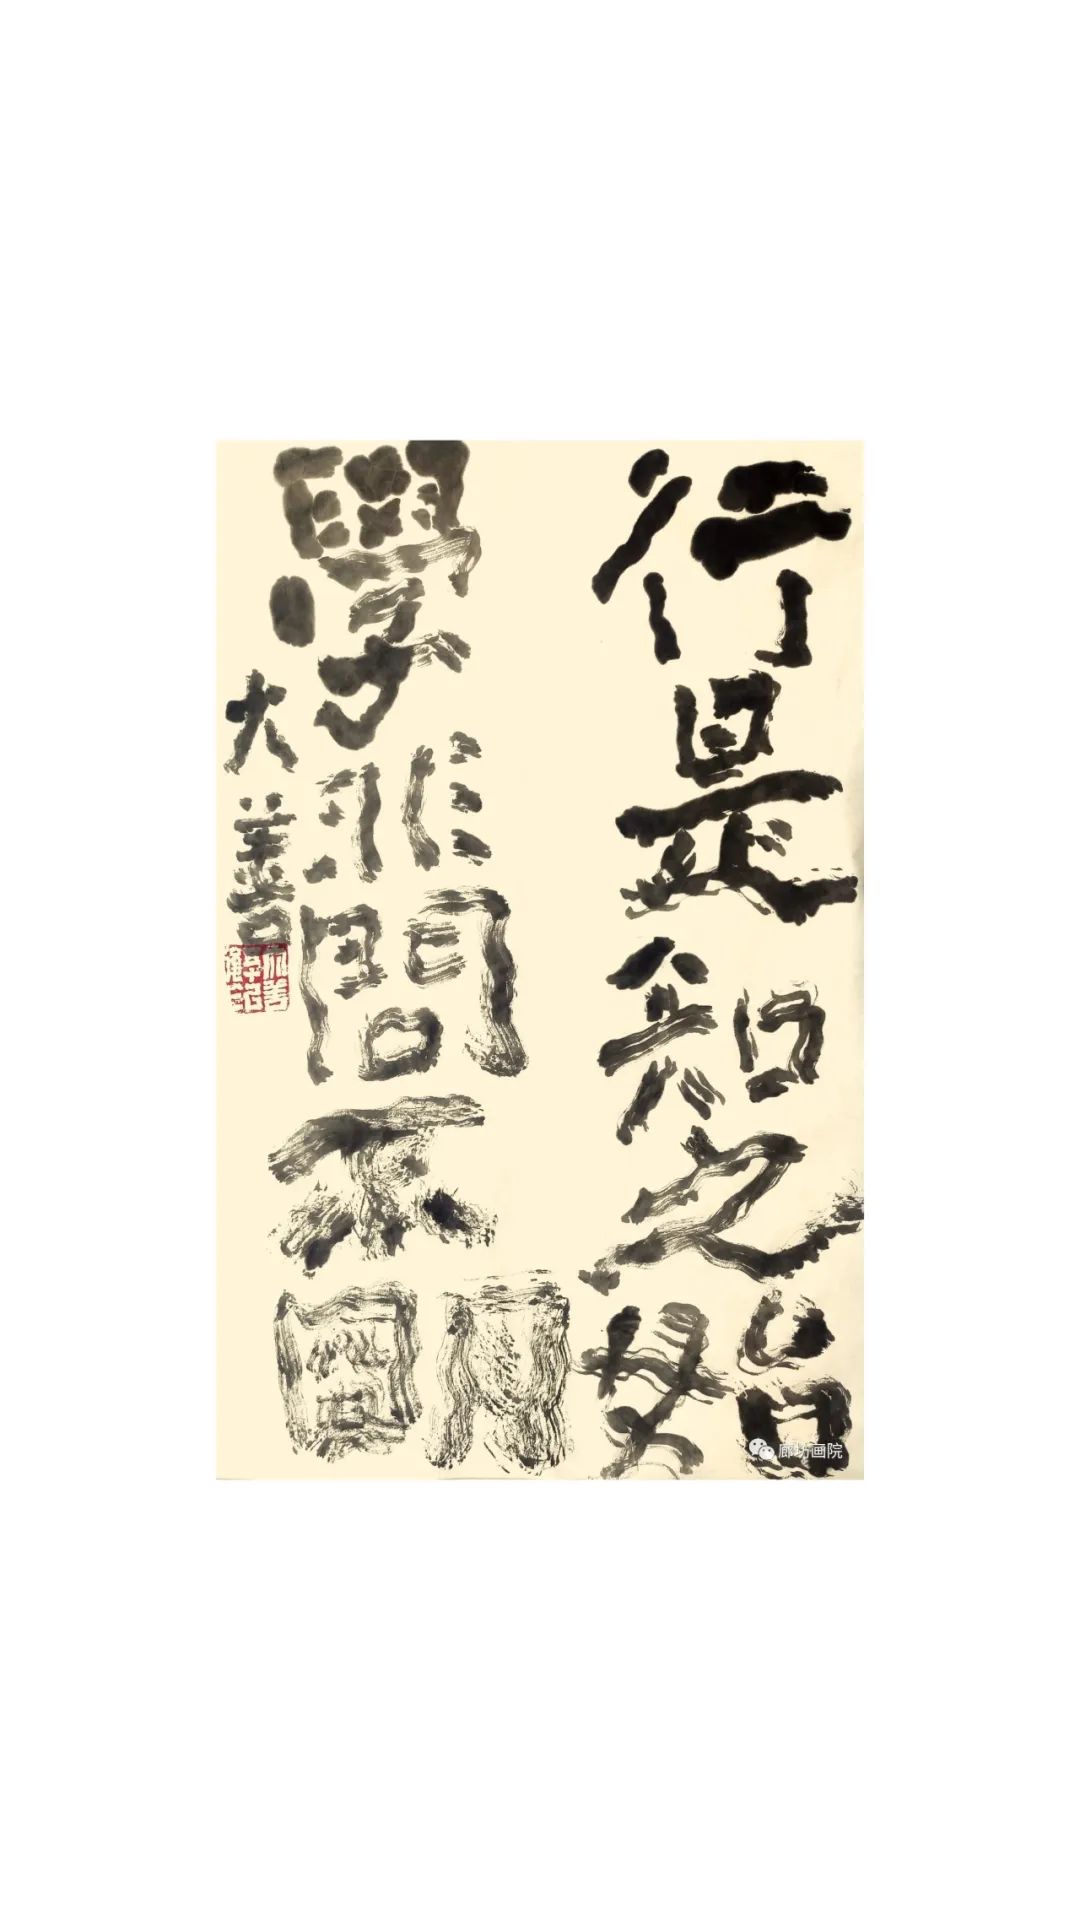 行是知之始
學非問不朙
大善
廊坊画院